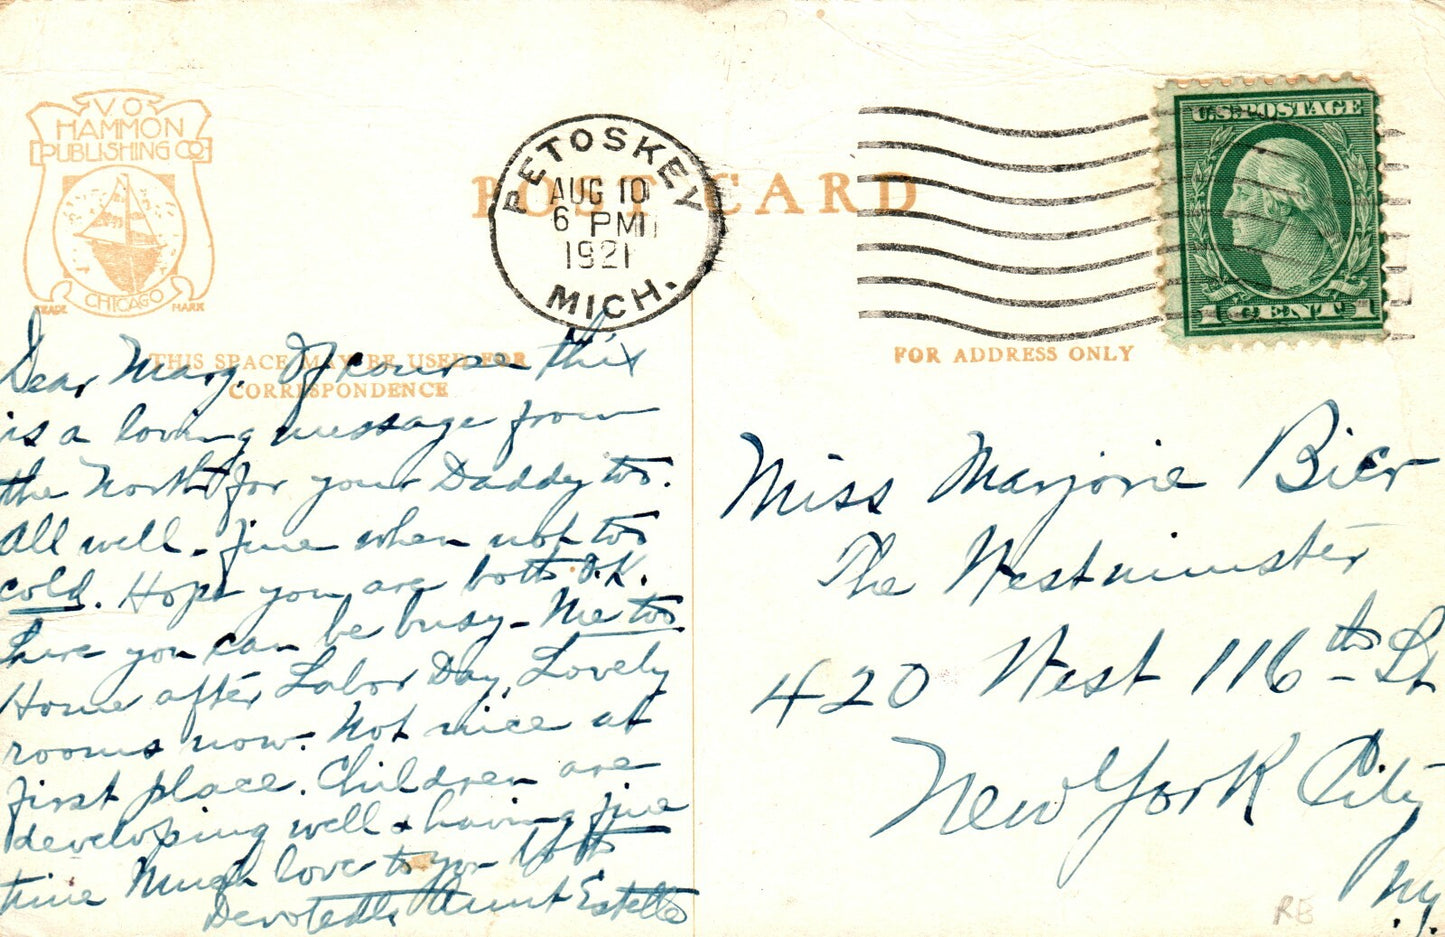 V O
HAMMON
PUBLISHING CO
CHICAGO
TRADE MARK
POST CARD
PETOSKEY
AUG 10
6 PM
1921
MICH.
U.S. POSTAGE
1 CENT 1
THIS SPACE MAY BE USED FOR
CORRESPONDENCE
FOR ADDRESS ONLY
Dear Marj. Of course this
is a loving message from
the North for your Daddy too.
All well. fine when not too
cold. Hope you are both O.K.
Sure you can be busy - Me too.
Home after Labor Day. Lovely
rooms now. Not nice at
first place. Children are
developing well & having fine
time Much love to you both
Devotedly Aunt Estelle
Miss Marjorie Bier
The Westminster
420 West 116th St
New York City
N.Y.
RE